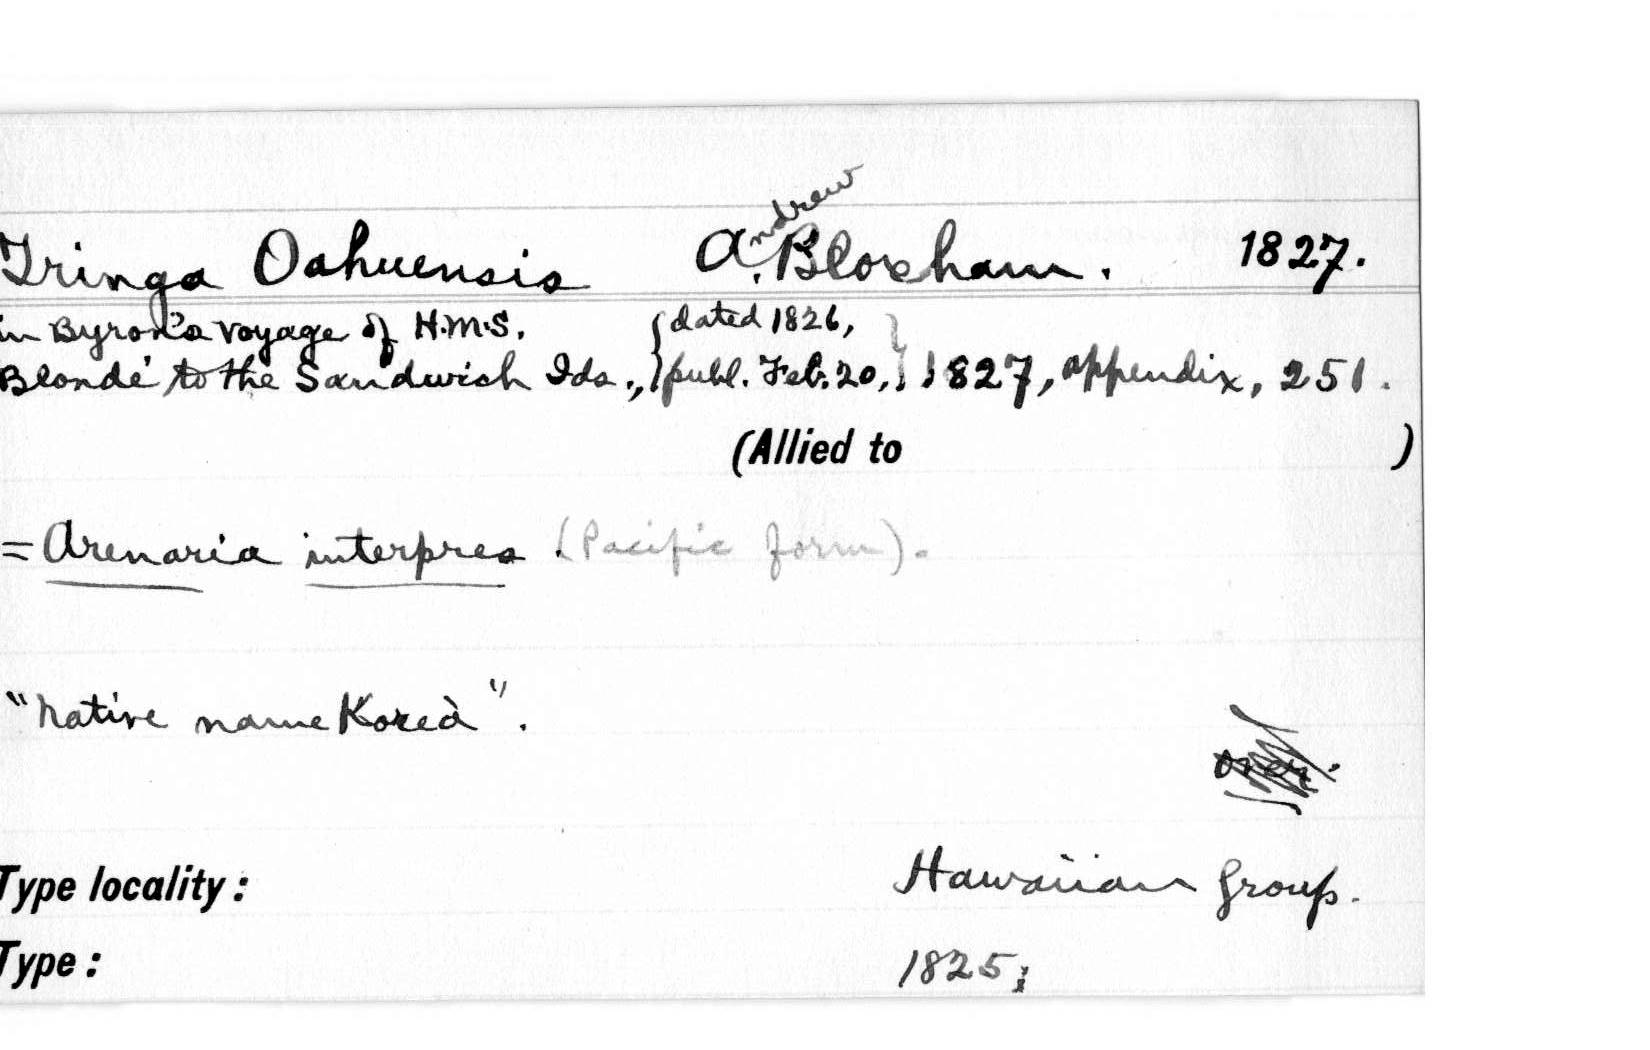 Tringa Oahuensis A. Bloxham. 1827.
ndrew
in Byron's voyage of H.M.S. {dated 1826,}
Blonde to the Sandwich Ids., {publ. Feb. 20,} 1827, appendix, 251.
(Allied to )
= Arenaria interpres (Pacific form).
"native name Korea".
over.
Type locality: Hawaiian Group.
Type: 1825;